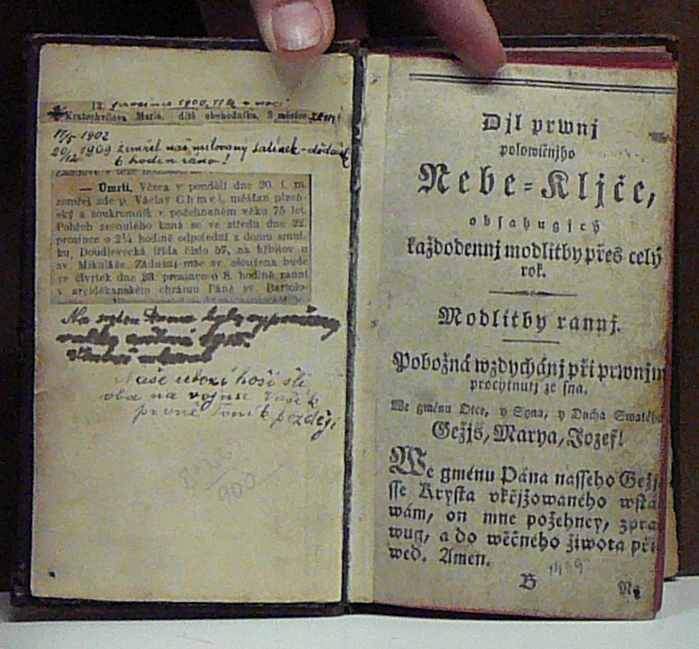 12. prosince 1900, 11 h v noci
Kratochvílova Marie, dítě obchodníka, 3 měsíce
1902
20/12 1909 zemřel náš milovaný tatínek-dědeček
6 hodin ráno!
— Úmrtí. Včera v pondělí dne 20. t. m.
zemřel zde p. Václav Chmel, měšťan plzeň-
ský a soukromník v požehnaném věku 75 let.
Pohřeb zesnulého koná se ve středu dne 22.
prosince o 2¼ hodině odpolední z domu smut-
ku, Doudlevecká třída číslo 57, na hřbitov u
sv. Mikuláše. Zádušní mše sv. sloužena bude
ve čtvrtek dne 23. prosince o 8. hodině ranní
v arciděkanském chrámu Páně sv. Bartolo-
Na
války 1915.
Naše hoši šli
oba na vojnu Vašek
prvně Toník později
900
Djl prwnj
polowičnjho
Nebe-Kljče,
obsahugjcý
každodennj modlitby přes celý
rok.
Modlitby rannj.
Pobožná wzdychánj při prwnjm
procýtnutj ze sna.
We gménu Otce, y Syna, y Ducha Swatého
Gežjš, Marya, Jozef!
We gménu Pána nasseho Gežj
sse Krysta vkřjžowaného wstá-
wám, on mne požehney, zpra-
wug, a do wěčného žiwota při-
wed. Amen.
B